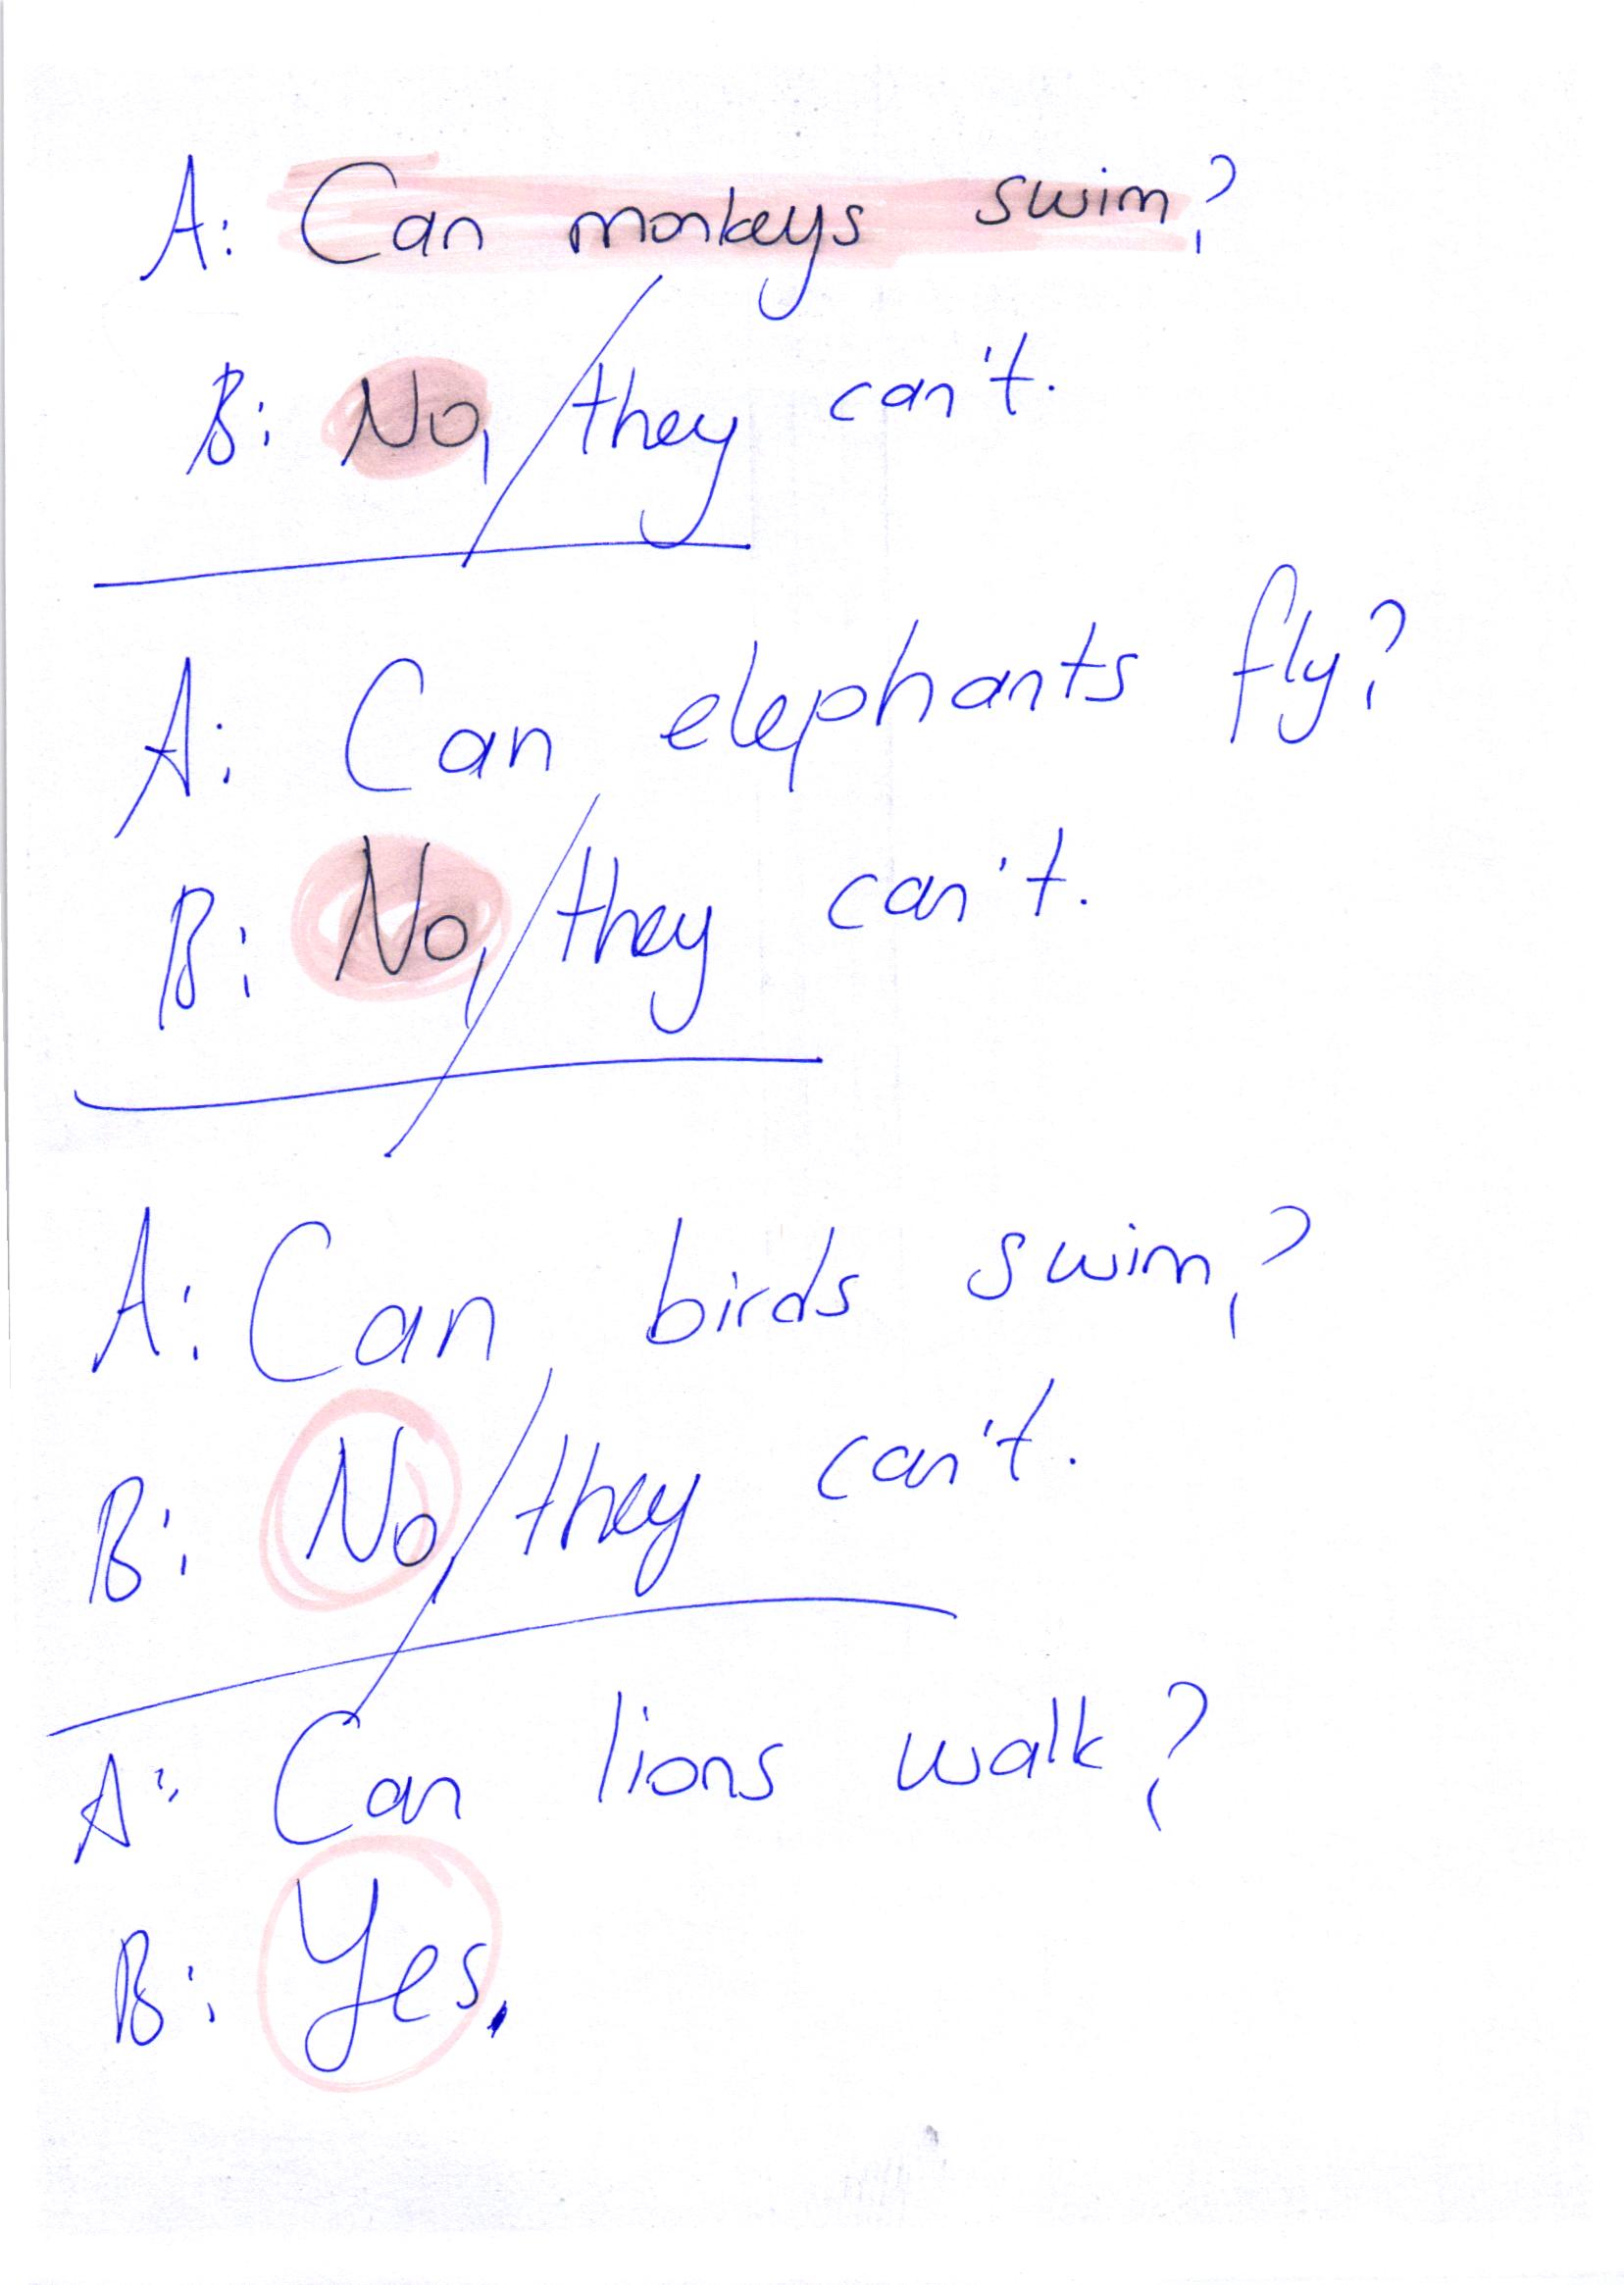 A: Can monkeys swim?
B: No, / they can't.
A: Can elephants fly?
B: No, / they can't.
A: Can birds swim?
B: No, / they can't.
A: Can lions walk?
B: Yes.